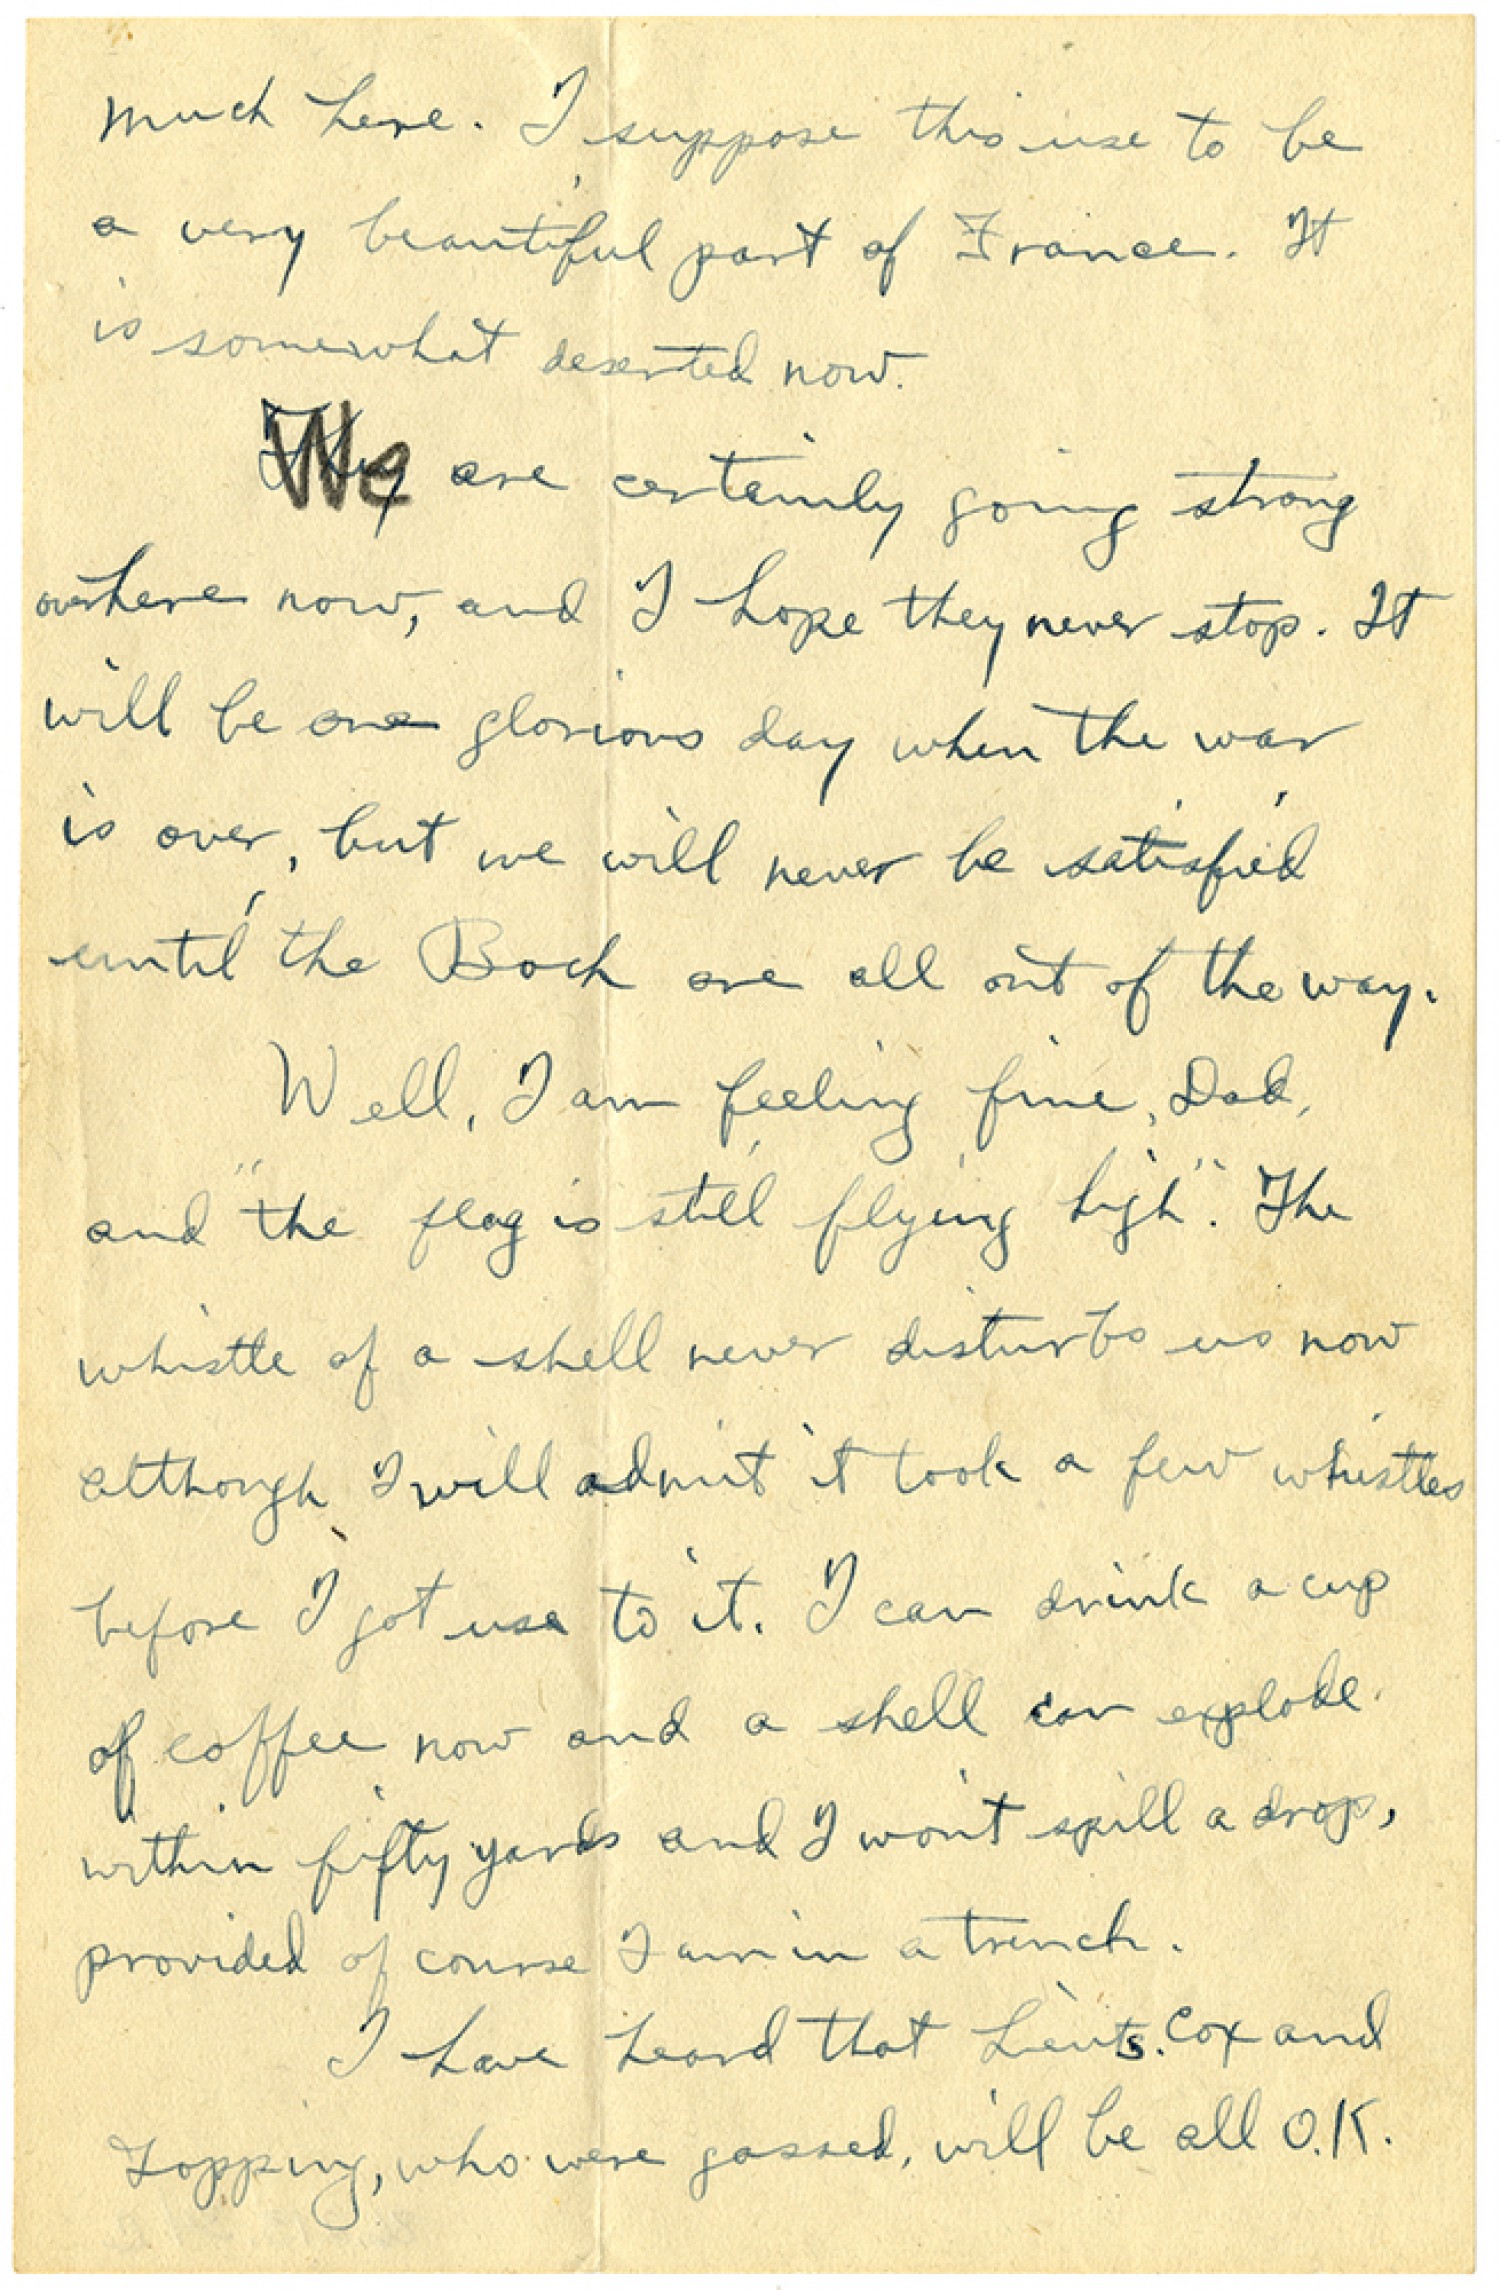 much here. I suppose this use to be
a very beautiful part of France. It
is somewhat deserted now.
We are certainly going strong
overhere now, and I hope they never stop. It
will be one glorious day when the war
is over, but we will never be satisfied
until the Boch are all out of the way.
Well, I am feeling fine, Dad,
and "the flag is still flying high". The
whistle of a shell never disturbs us now
although I will admit it took a few whistles
before I got use to it. I can drink a cup
of coffee now and a shell can explode
within fifty yards and I won't spill a drop,
provided of course I am in a trench.
I have heard that Lieuts. Cox and
Topping, who were gassed, will be all O.K.